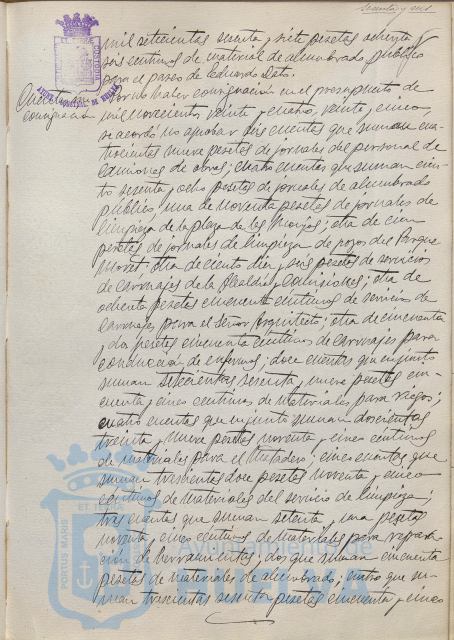 Sesenta y seis
mil setecientas sesenta y siete pesetas ochenta y
seis centimos de material de alumbrado publico
para el paseo de Eduardo Dato.
Por no haber consignación en el presupuesto de
consignación
mil novecientos veinte y cuatro, veinte y cinco,
se acordó no aprobar seis cuentas que suman cua-
trocientas nueve pesetas de jornales del personal de
caminos de obras; cuatro cuentas que suman cien-
to sesenta y ocho pesetas de jornales de alumbrado
publico, una de noventa pesetas de jornales de
limpieza de la plaza de las Monjas; otra de cien
pesetas de jornales de limpieza de pozos del Parque
Moret; otra de ciento diez y seis pesetas de servicios
de carruajes de la Alcaldia y Comisiones; otra de
ochenta pesetas cincuenta centimos de servicio de
carruaje para el señor Arquitecto; otra de cincuenta
y dos pesetas cincuenta centimos de carruajes para
conducción de enfermos; doce cuentas que en junto
suman setecientas sesenta y nueve pesetas cin-
cuenta y cinco centimos de materiales para riegos;
cuatro cuentas que en junto suman doscientas
treinta y nueve pesetas noventa y cinco centimos
de materiales para el Matadero; cinco cuentas que
suman trescientas doce pesetas noventa y cinco
centimos de materiales del servicio de limpieza;
tres cuentas que suman setenta y una pesetas
noventa y cinco centimos de materiales para repara-
ción de herramientas; dos que suman cincuenta
pesetas de materiales de alumbrado; cuatro que su-
man trescientas sesenta pesetas cincuenta y cinco
ET TERRA
PORTUS MARIS
Ayuntamiento de
HUELVA